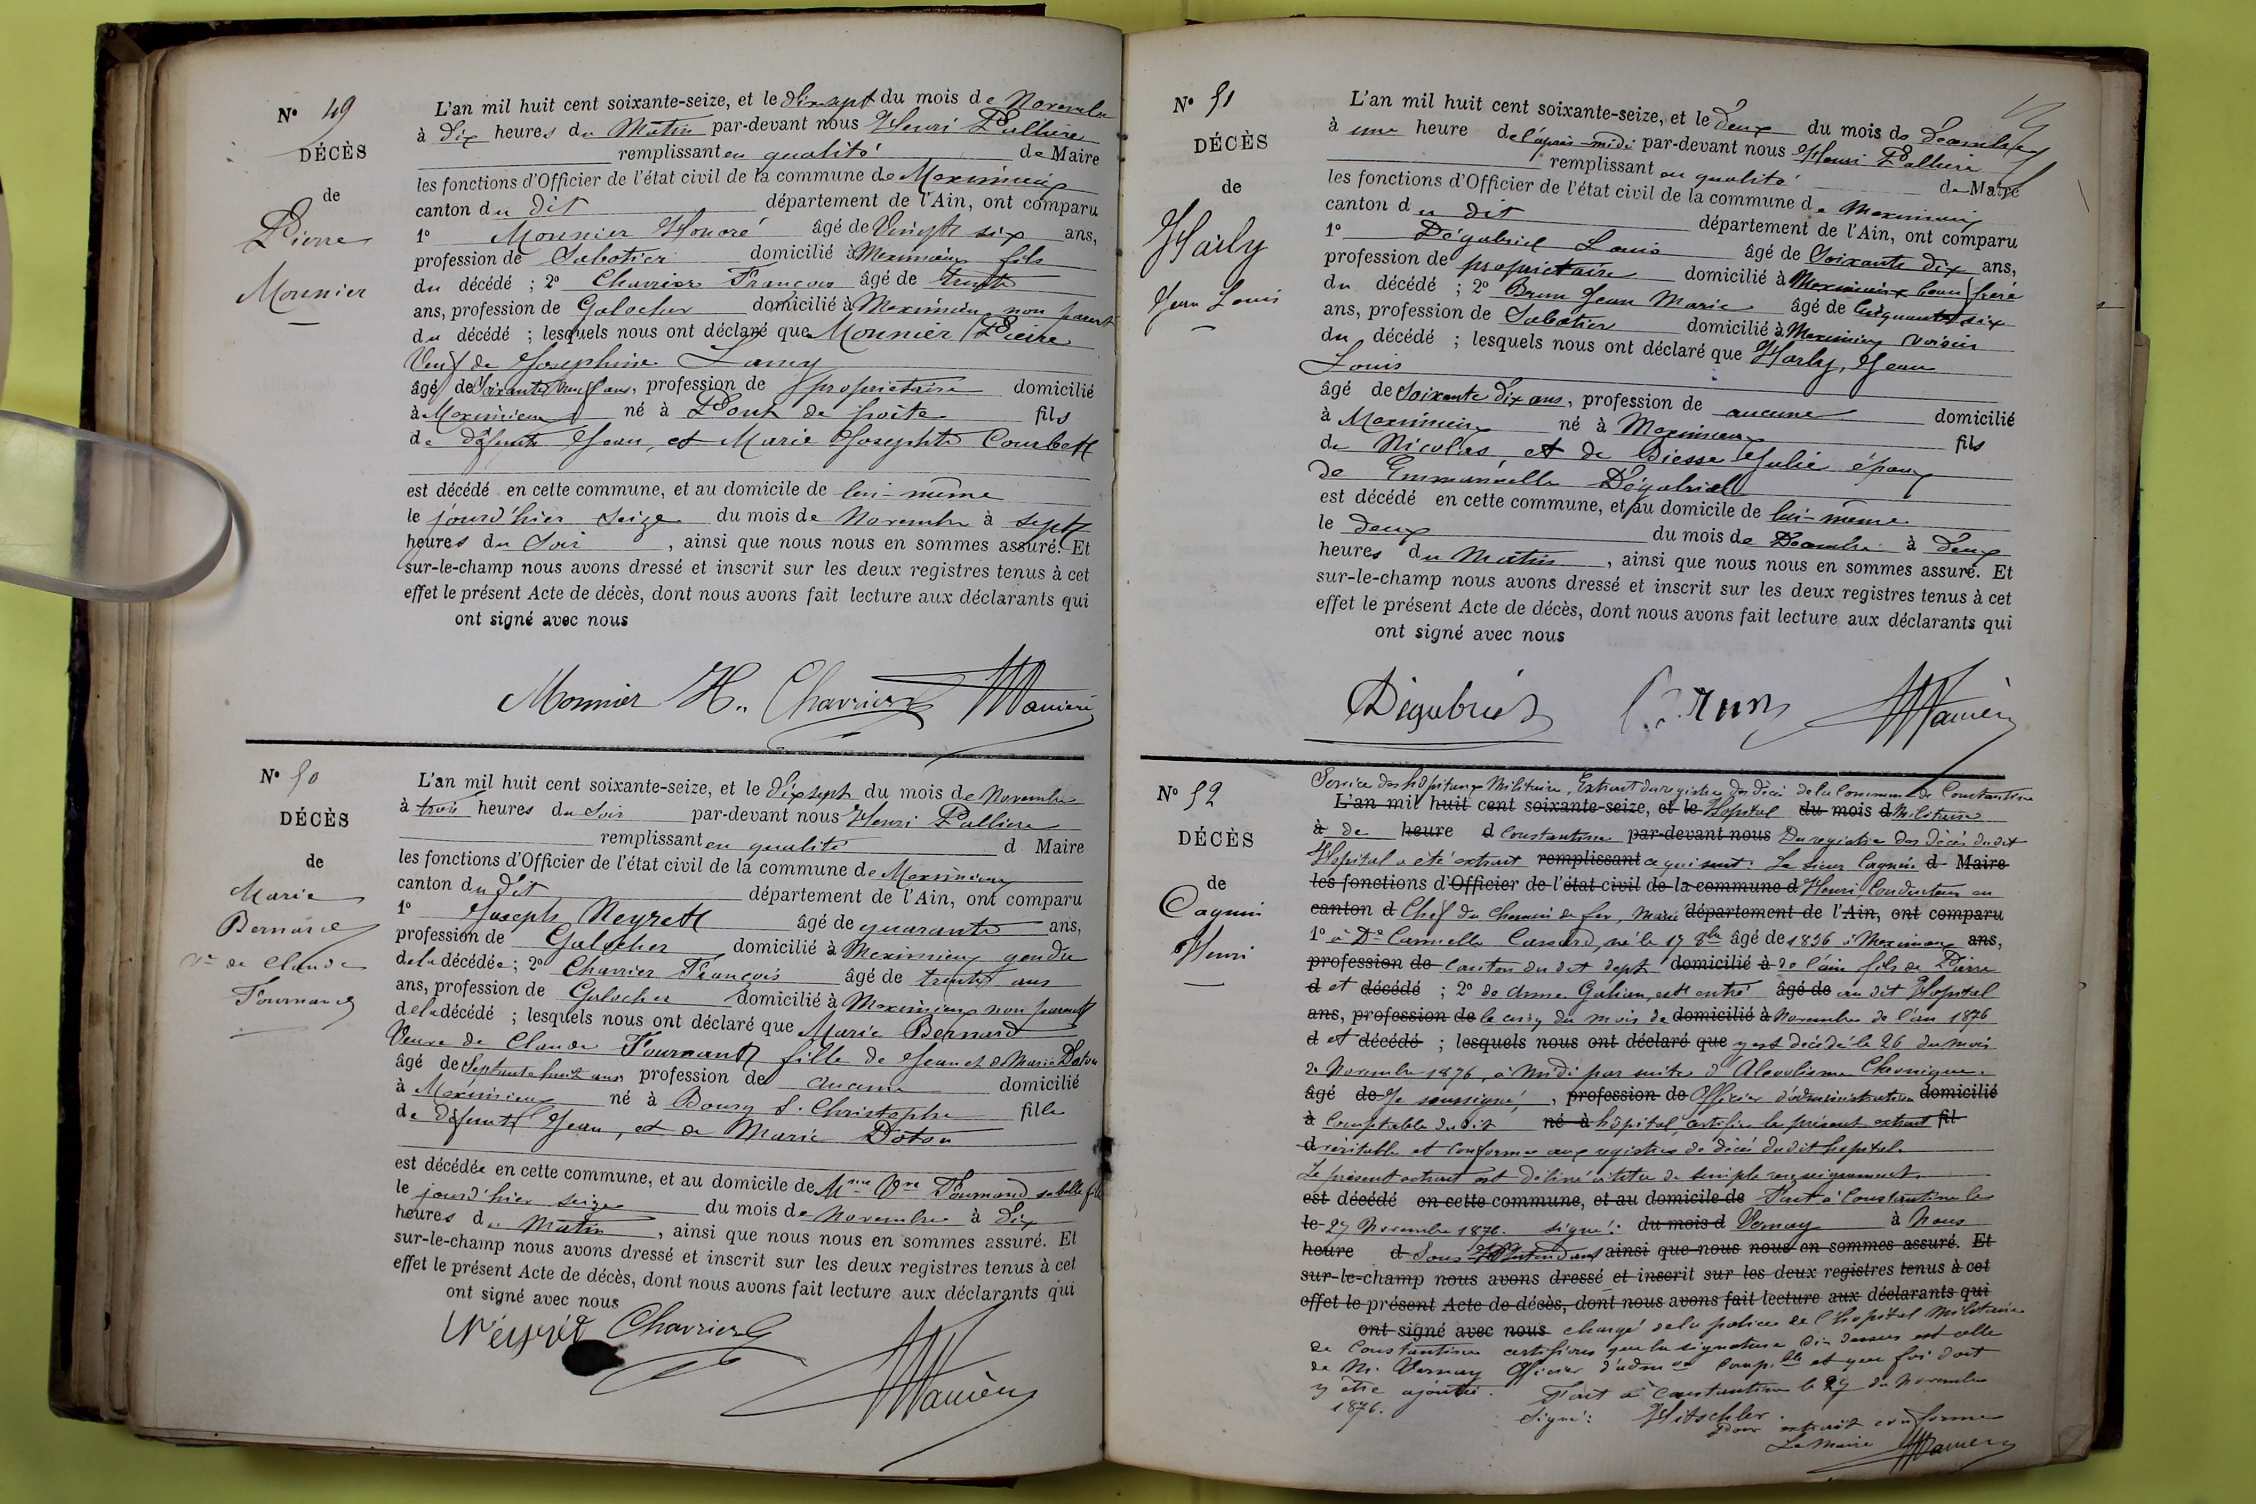 N° 49
DÉCÈS
de
Pierre
Monnier
L'an mil huit cent soixante-seize, et le dix sept du mois de Novembre
à dix heures du Matin par-devant nous Henri Pallière
remplissant en qualité de Maire
les fonctions d'Officier de l'état civil de la commune de Meximieux
canton du dit département de l'Ain, ont comparu
1° Monnier Honoré âgé de Vingt six ans,
profession de Sabotier domicilié à Meximieux fils
du décédé ; 2° Charrier François âgé de trente
ans, profession de Galocher domicilié à Meximieux non parent
du décédé ; lesquels nous ont déclaré que Monnier Pierre
Veuf de Josephine
âgé de Soixante neuf ans, profession de propriétaire domicilié
à Meximieux né à Pont de fils
de défunts Jean, et Marie Josephte Courbett
est décédé en cette commune, et au domicile de lui-même
le jourd'hier seize du mois de Novembre à sept
heures du Soir, ainsi que nous nous en sommes assuré. Et
sur-le-champ nous avons dressé et inscrit sur les deux registres tenus à cet
effet le présent Acte de décès, dont nous avons fait lecture aux déclarants qui
ont signé avec nous
Monnier H. Charrier
N° 50
DÉCÈS
de
Marie
Bernard
Ve de Claude
Fournand
L'an mil huit cent soixante-seize, et le dix sept du mois de Novembre
à trois heures du Soir par-devant nous Henri Pallière
remplissant en qualité d Maire
les fonctions d'Officier de l'état civil de la commune de Meximieux
canton du dit département de l'Ain, ont comparu
1° Joseph Neyrett âgé de quarante ans,
profession de Galocher domicilié à Meximieux gendre
de la décédée ; 2° Charrier François âgé de trente ans
ans, profession de Galocher domicilié à Meximieux non parent
de la décédé ; lesquels nous ont déclaré que Marie Bernard
Veuve de Claude Fournand fille de Jean et de Marie
âgé de Septante huit ans profession de aucune domicilié
à Meximieux né à Bourg St Christophe fille
de défunt Jean, et de Marie
est décédée en cette commune, et au domicile de Mme Vve Fournand sa belle fille
le jourd'hier seize du mois de Novembre à Dix
heures du Matin, ainsi que nous nous en sommes assuré. Et
sur-le-champ nous avons dressé et inscrit sur les deux registres tenus à cet
effet le présent Acte de décès, dont nous avons fait lecture aux déclarants qui
ont signé avec nous
Neyret Charrier
N° 51
DÉCÈS
de
Harly
Jean Louis
L'an mil huit cent soixante-seize, et le deux du mois de Décembre
à une heure de l'après-midi par-devant nous Henri Pallière
remplissant en qualité de Maire
les fonctions d'Officier de l'état civil de la commune de Meximieux
canton du dit département de l'Ain, ont comparu
1° Dégabriel Louis âgé de Soixante dix ans,
profession de propriétaire domicilié à Meximieux beau frère
du décédé ; 2° Brun Jean Marie âgé de Cinquante six
ans, profession de Sabotier domicilié à Meximieux voisin
du décédé ; lesquels nous ont déclaré que Harly, Jean
Louis
âgé de Soixante dix ans, profession de aucune domicilié
à Meximieux né à Meximieux fils
de Nicolas et de Julie époux
de Emmanuelle Dégabriel
est décédé en cette commune, et au domicile de lui-même
le deux du mois de Décembre à deux
heures du Matin, ainsi que nous nous en sommes assuré. Et
sur-le-champ nous avons dressé et inscrit sur les deux registres tenus à cet
effet le présent Acte de décès, dont nous avons fait lecture aux déclarants qui
ont signé avec nous
Dégabriel Brun
N° 52
DÉCÈS
de
Cagnin
Henri
Service des hôpitaux Militaires, Extrait du registre des décès de la Commune de Constantine
L'an mil huit cent soixante-seize, et le Hopital du mois d Militaire
à de heure d Constantine par-devant nous Du registre des décès du dit
Hopital a été extrait remplissant ce qui suit. Le sieur Cagnin d Maire
les fonctions d'Officier de l'état civil de la commune d Henri, Conducteur ou
canton d Chef de Chemin de fer, Marié département de l'Ain, ont comparu
1° à De Carmella Cassard, né le 17 8bre âgé de 1836 à Meximieux ans,
profession de Canton du dit dept domicilié à de l'ain fils de Pierre
d et décédé ; 2° de Anne est entré âgé de au dit Hopital
ans, profession de le cinq du mois de domicilié à Novembre de l'an 1876
d et décédé ; lesquels nous ont déclaré que y est décédé le 26 du mois
de Novembre 1876, à Midi par suite d'Alcoolisme Chronique.
âgé de Je soussigné, profession de Officier d'administration domicilié
à Comptable du dit né à hôpital certifie le présent extrait fil
d véritable et conforme aux registres de décès du dit hopital.
Le présent extrait est délivré à titre de simple renseignement.
est décédé en cette commune, et au domicile de Fait à Constantine le
le 27 Novembre 1876. signé : du mois d Vernay à Nous
heure d Sous Intendant ainsi que nous nous en sommes assuré. Et
sur-le-champ nous avons dressé et inscrit sur les deux registres tenus à cet
effet le présent Acte de décès, dont nous avons fait lecture aux déclarants qui
ont signé avec nous chargé de la police de l'hopital Militaire
de Constantine certifions que la signature ci-dessus est celle
de M. Vernay Officier d'admon compble et que foi doit
y être ajoutée. Fait à Constantine le 27 de Novembre
1876. Signé : Hitschler.
Pour extrait conforme
Le Maire